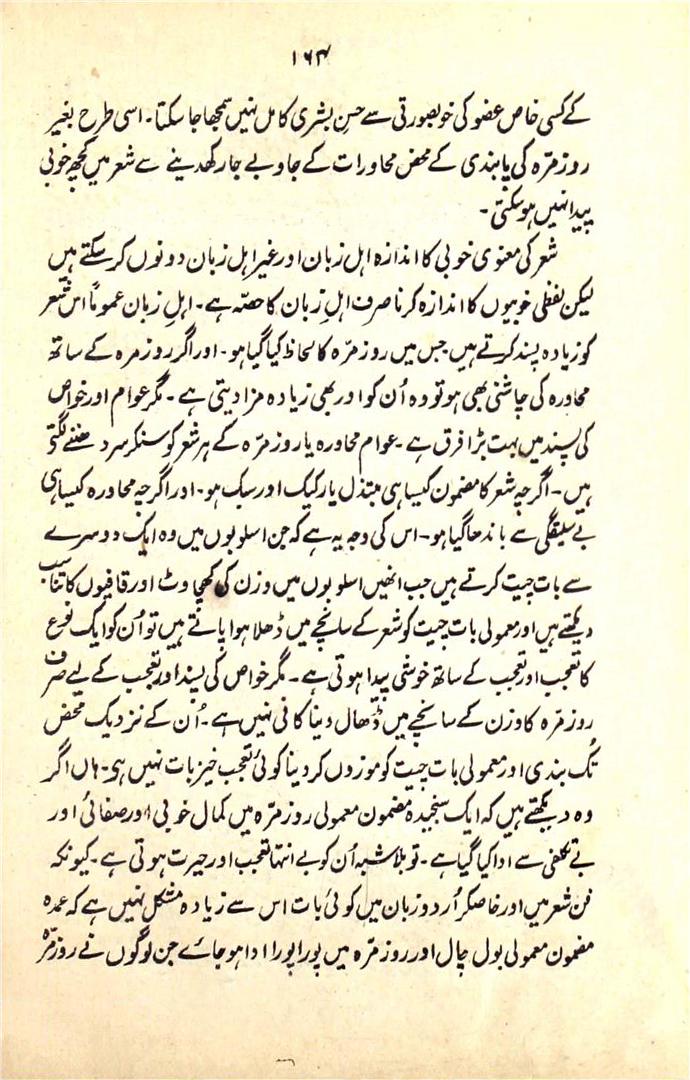 ۱۶۴
کے کسی خاص عضو کی خوبصورتی سے حسن بشری کامل نہیں سمجھا جا سکتا۔ اسی طرح بغیر
روز مرّہ کی پابندی کے محض محاورات کے جا و بے جا رکھدینے سے شعر میں کچھ خوبی
پیدا نہیں ہو سکتی۔
شعر کی معنوی خوبی کا اندازہ اہل زبان اور غیر اہل زبان دونوں کر سکتے ہیں
لیکن لفظی خوبیوں کا اندازہ کرنا صرف اہلِ زبان کا حصّہ ہے۔ اہلِ زبان عموماً اس شعر
کو زیادہ پسند کرتے ہیں جس میں روز مرّہ کا لحاظ کیا گیا ہو۔ اور اگر روز مرہ کے ساتھ
محاورہ کی چاشنی بھی ہو تو وہ اُن کو اور بھی زیادہ مزا دیتی ہے۔ مگر عوام اور خواص
کی پسند میں بہت بڑا فرق ہے۔ عوام محاورہ یا روز مرّہ کے ہر شعر کو سنکر سر دھننے لگتے
ہیں۔ اگرچہ شعر کا مضمون کیسا ہی مبتذل یا رکیک اور سبک ہو۔ اور اگرچہ محاورہ کیسا ہی
بے سلیقگی سے باندھا گیا ہو۔ اس کی وجہ یہ ہے کہ جن اسلوبوں میں وہ ایک دوسرے
سے بات چیت کرتے ہیں جب انھیں اسلوبوں میں وزن کی کھچاوٹ اور قافیوں کا تناسب
دیکھتے ہیں اور معمولی بات چیت کو شعر کے سانچے میں ڈھلا ہوا پاتے ہیں تو اُن کو ایک نوع
کا تعجب اور تعجب کے ساتھ خوشی پیدا ہوتی ہے۔ مگر خواص کی پسند اور تعجب کے لیے صرف
روز مرّہ کا وزن کے سانچے میں ڈھال دینا کافی نہیں ہے۔ اُن کے نزدیک محض
تُک بندی اور معمولی بات چیت کو موزوں کر دینا کوئی تعجب خیز بات نہیں ہی۔ ہاں اگر
وہ دیکھتے ہیں کہ ایک سنجیدہ مضمون معمولی روز مرّہ میں کمال خوبی اور صفائی اور
بے تکلفی سے ادا کیا گیا ہے۔ تو بلا شبہ اُن کو بے انتہا تعجب اور حیرت ہوتی ہے۔ کیونکہ
فن شعر میں اور خاصکر اُردو زبان میں کوئی بات اس سے زیادہ مشکل نہیں ہے کہ عمدہ
مضمون معمولی بول چال اور روز مرّہ میں پورا پورا ادا ہو جائے جن لوگوں نے روز مرّہ